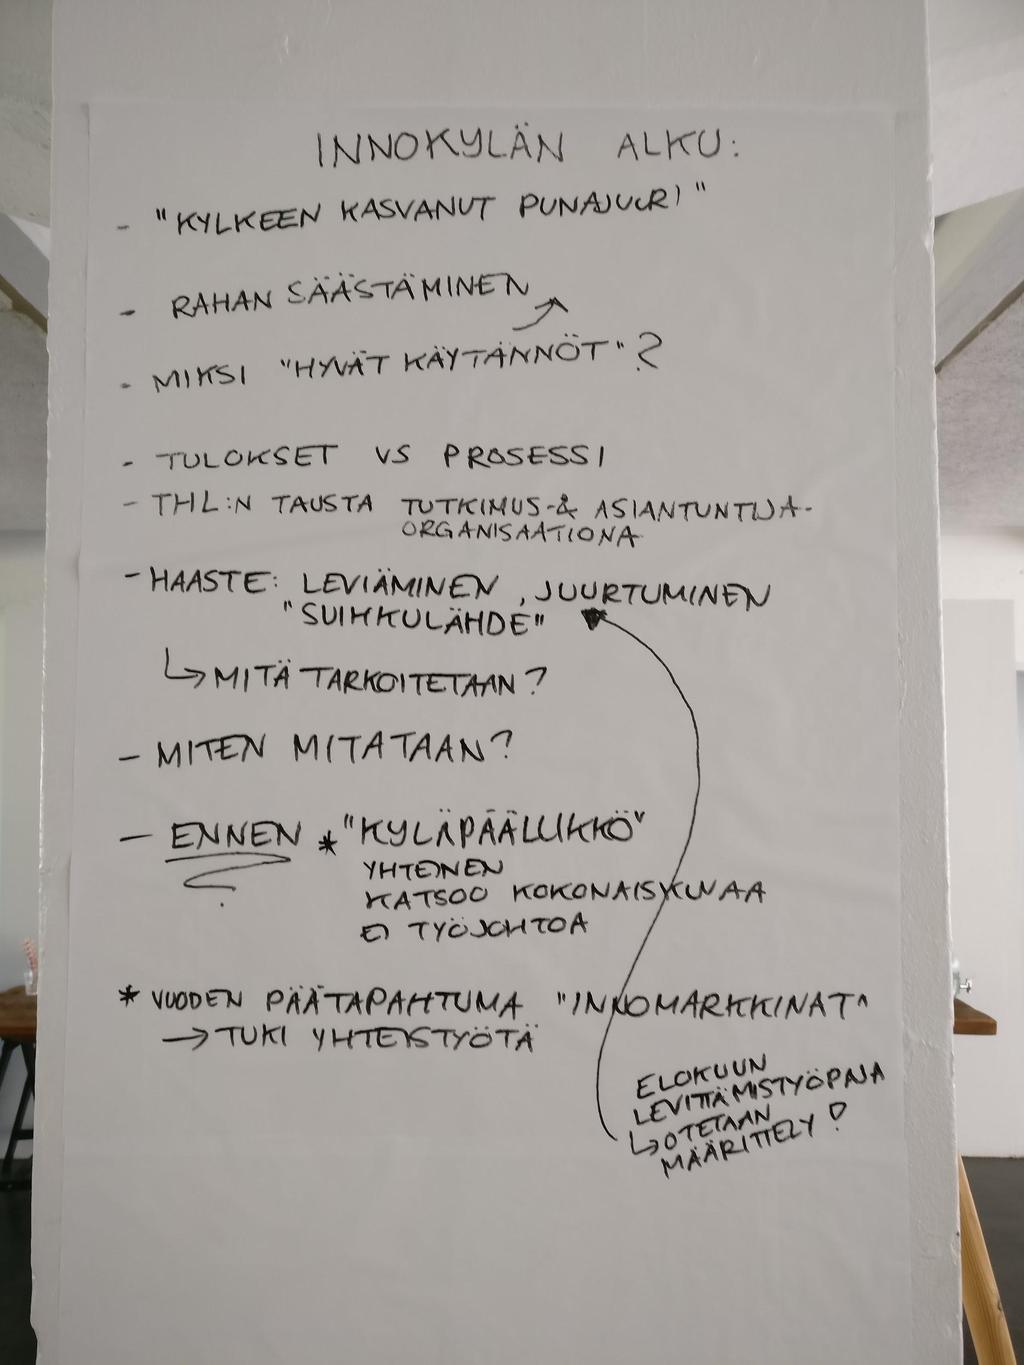 INNOKYLÄN ALKU:
- "KYLKEEN KASVANUT PUNAJUURI"
- RAHAN SÄÄSTÄMINEN
- MIKSI "HYVÄT KÄYTÄNNÖT"?
- TULOKSET VS PROSESSI
- THL:N TAUSTA TUTKIMUS-& ASIANTUNTIJA-
ORGANISAATIONA
- HAASTE: LEVIÄMINEN, JUURTUMINEN
"SUIHKULÄHDE"
↳ MITÄ TARKOITETAAN?
- MITEN MITATAAN?
- ENNEN * "KYLÄPÄÄLLIKKÖ"
YHTEINEN
KATSOO KOKONAISKUVAA
EI TYÖJOHTOA
* VUODEN PÄÄTAPAHTUMA "INNOMARKKINAT"
→ TUKI YHTEISTYÖTÄ
ELOKUUN
LEVITTÄMISTYÖPAJA
↳ OTETAAN
MÄÄRITTELY!